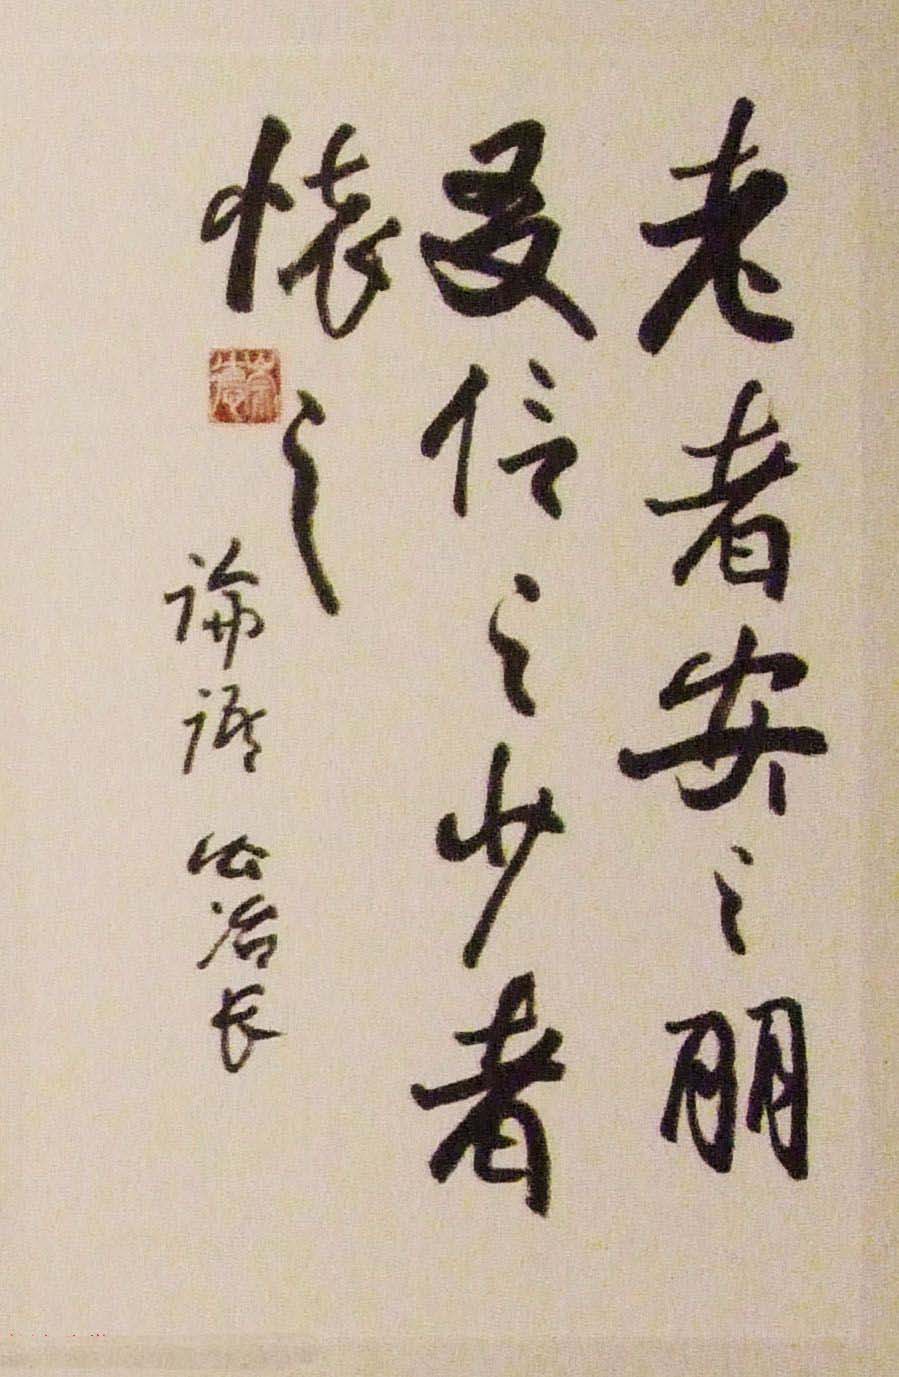 老者安之朋
友信之少者
懷之
論語 公冶长